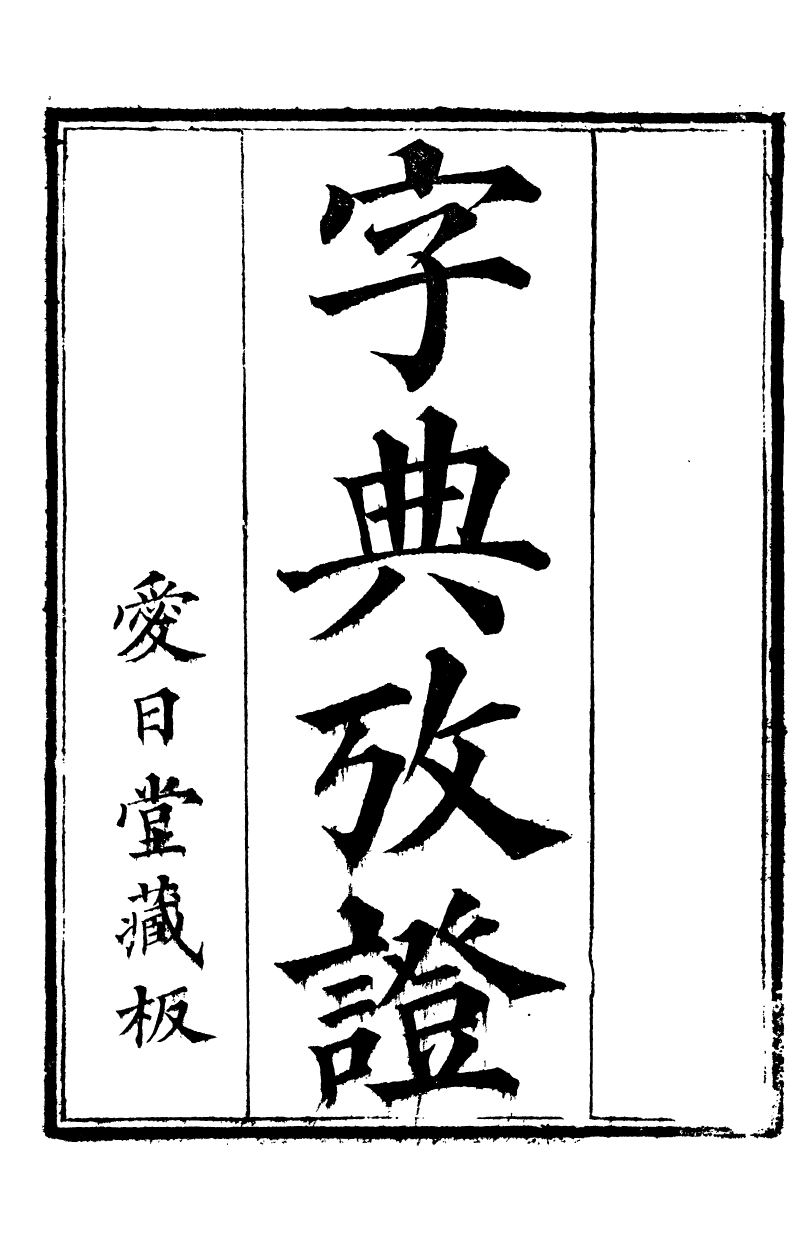 字典攷證
愛日堂藏板